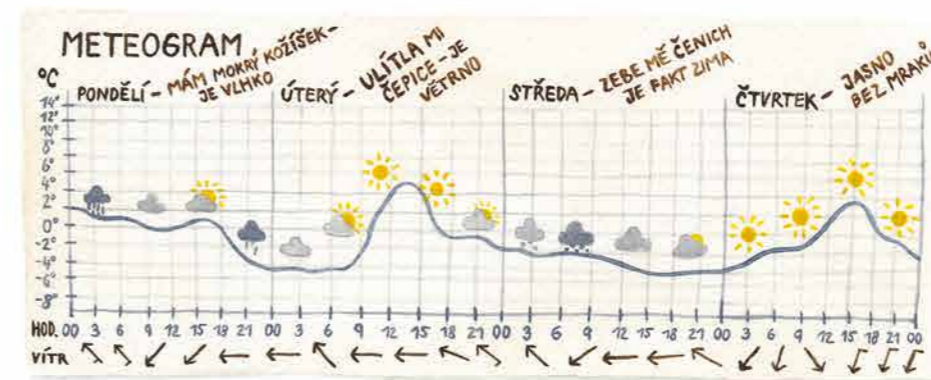 METEOGRAM
°C
PONDĚLÍ - MÁM MOKRÝ KOŽÍŠEK -
JE VLHKO
ÚTERÝ - ULÍTLA MI
ČEPICE - JE
VĚTRNO
STŘEDA - ZEBE MĚ ČENICH
JE FAKT ZIMA
ČTVRTEK - JASNO
BEZ MRAKŮ
14°
12°
10°
8°
6°
4°
2°
0°
-2°
-4°
-6°
-8°
HOD. 00 3 6 9 12 15 18 21 00 3 6 9 12 15 18 21 00 3 6 9 12 15 18 21 00 3 6 9 12 15 18 21 00
VÍTR